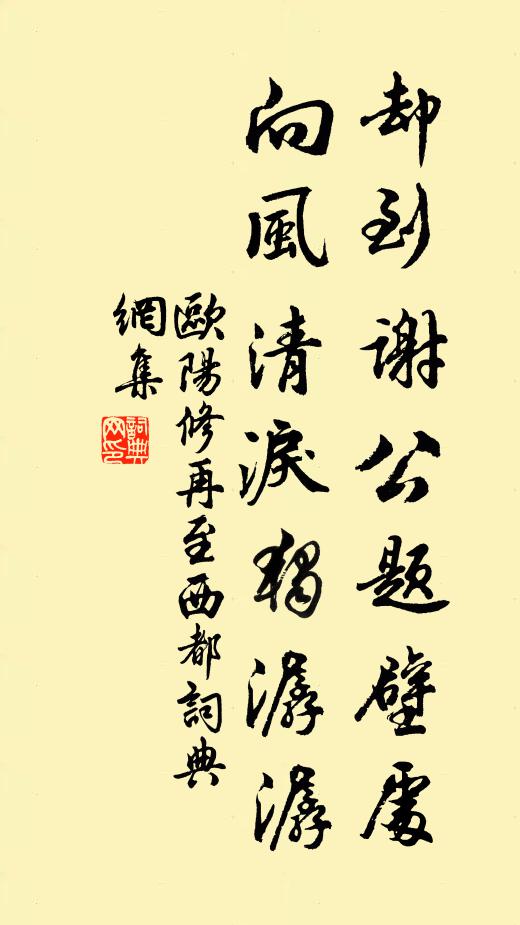 却到謝公題壁處
向風清淚獨潺潺
歐陽修再至西都詞典
網集
詞典
網印